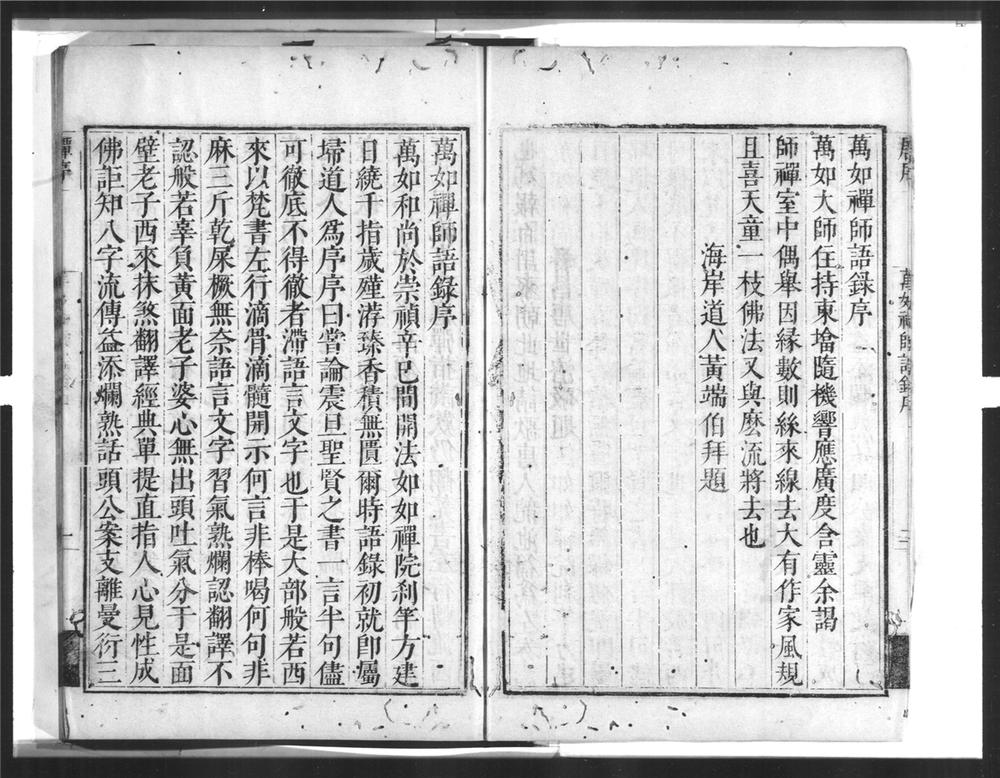 萬如禪師語錄序
萬如大師住持東塔隨機響應廣度含靈余謁
師禪室中偶舉因緣數則絲來線去大有作家風規
且喜天童一枝佛法又與麽流將去也
海岸道人黃端伯拜題
萬如禪師語錄序
萬如和尚於崇禎辛巳間開法如如禪院刹竿方建
日繞千指歲殣洊臻香積無匱爾時語錄初就卽屬
埽道人爲序序曰嘗論震旦聖賢之書一言半句儘
可徹底不得徹者滯語言文字也于是大部般若西
來以梵書左行滴骨滴髓開示何言非棒喝何句非
麻三斤乾屎橛無奈語言文字習氣熟爛認翻譯不
認般若辜負黃面老子婆心無出頭吐氣分于是面
壁老子西來抹煞翻譯經典單提直指人心見性成
佛詎知八字流傳益添爛熟話頭公案支離曼衍三
萬如禪師語錄序